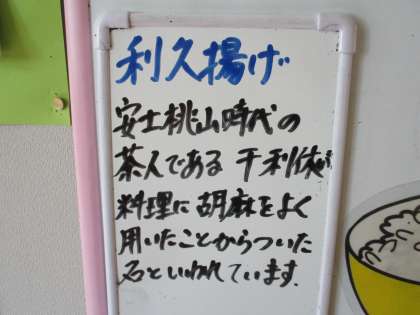 利久揚げ
安土桃山時代の
茶人である 千利休が
料理に胡麻をよく
用いたことからついた
名といわれています.